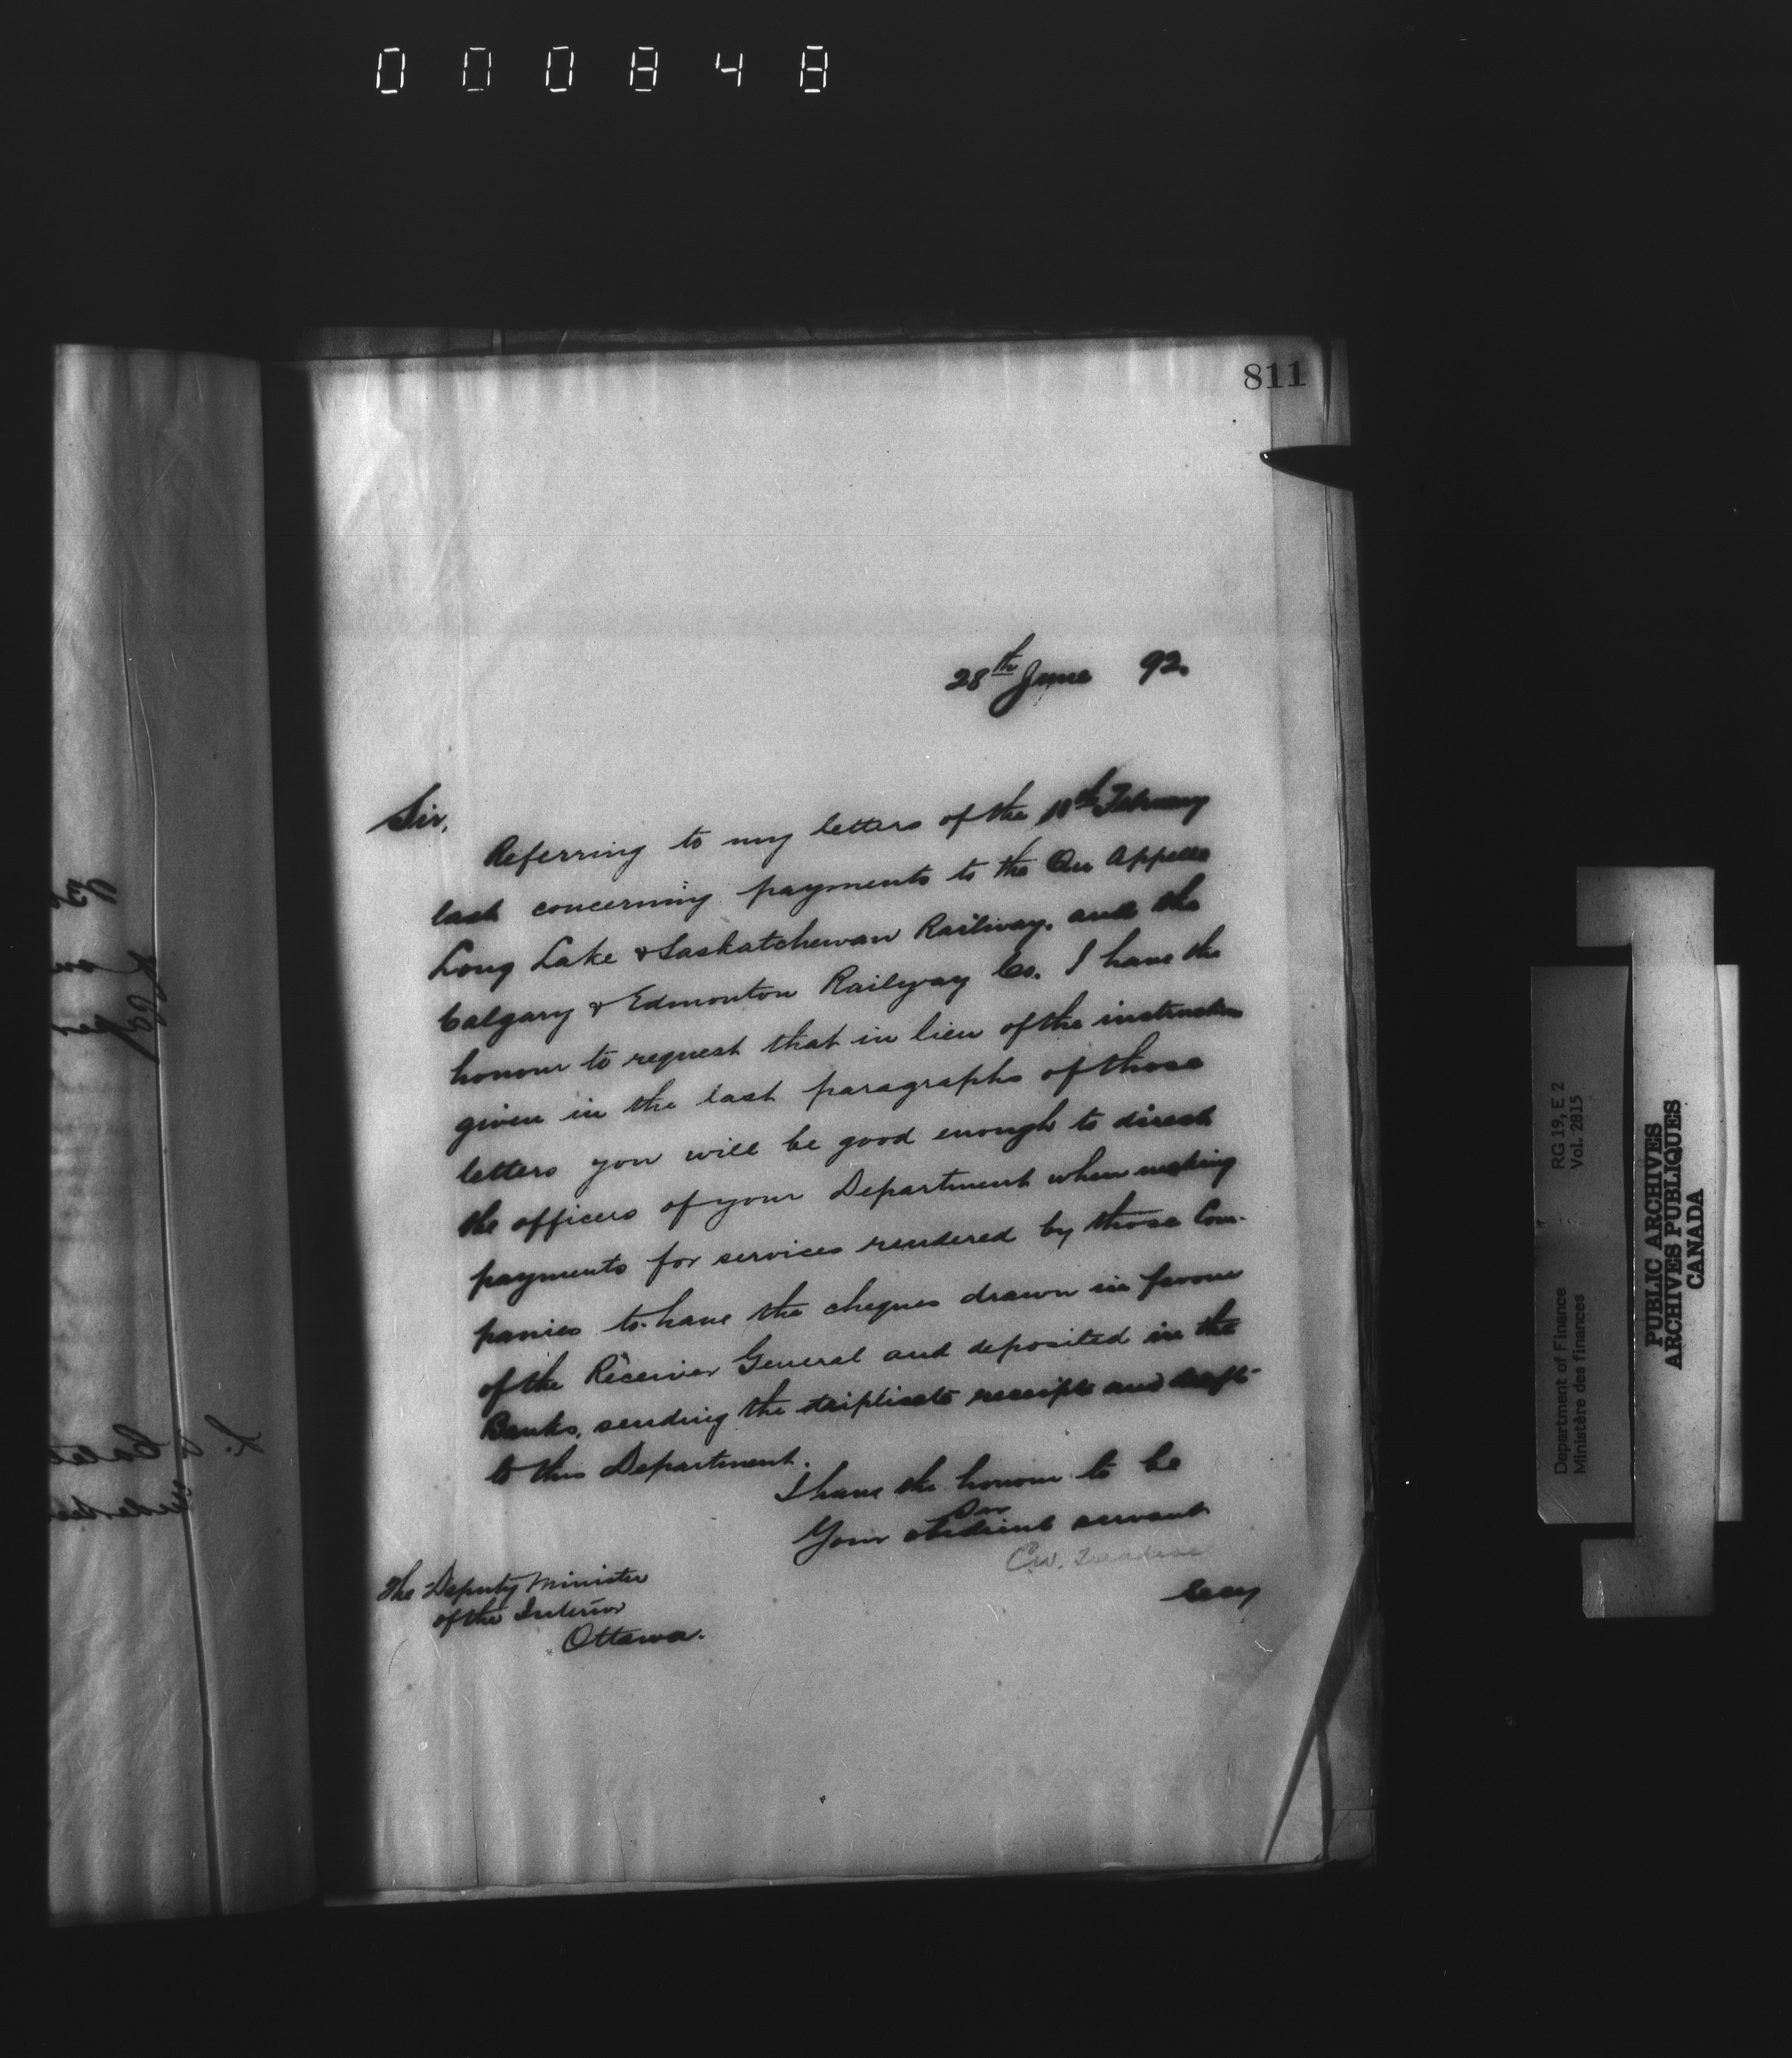 000848
811
28th June 92.
Sir,
Referring to my letters of the 11th February
last concerning payments to the Qu Appelle
Long Lake & Saskatchewan Railway. and the
Calgary & Edmonton Railway Co. I have the
honour to request that in lieu of the instruction
given in the last paragraphs of those
letters you will be good enough to direct
the officers of your Department when making
payments for services rendered by those Com-
panies to have the cheques drawn in favour
of the Receiver General and deposited in the
Banks, sending the triplicate receipt and draft
to this Department.
I have the honour to be
Sir
Your obedient servant
C.W.
Secy
The Deputy Minister
of the Interior
Ottawa.
Department of Finance RG 19, E 2
Ministère des finances Vol. 2815
PUBLIC ARCHIVES
ARCHIVES PUBLIQUES
CANADA